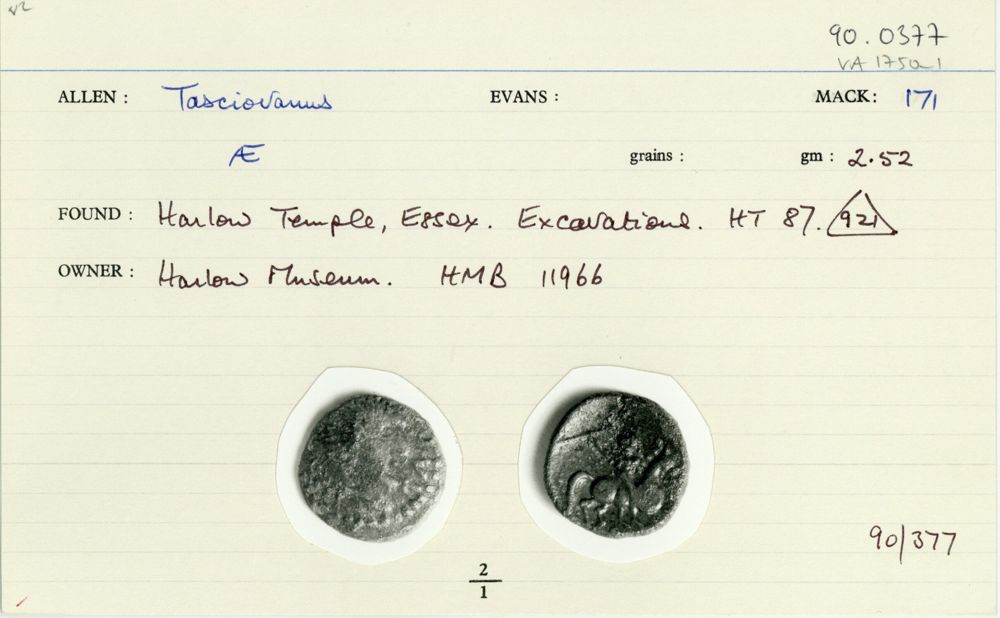 v2
90.0377
VA 1750.1
ALLEN : Tasciovanus EVANS : MACK : 171
Æ grains : gm : 2.52
FOUND : Harlow Temple, Essex. Excavations. HT 87. 921
OWNER : Harlow Museum. HMB 11966
90/377
2
1